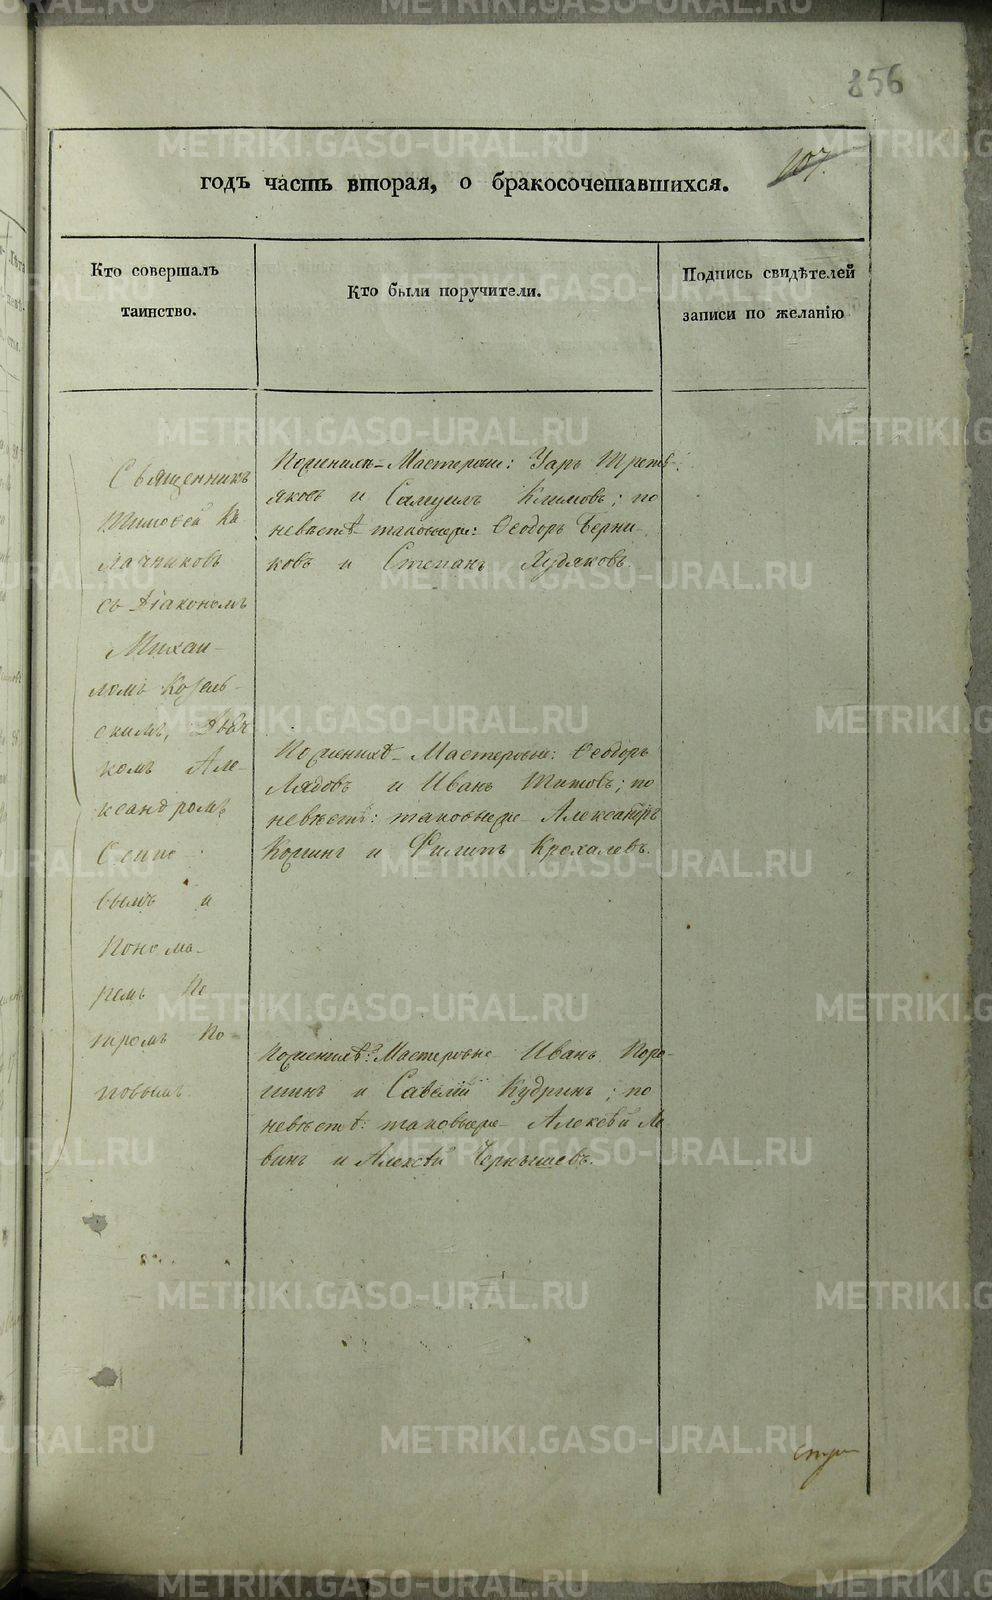 856
107.
годъ часть вторая, о бракосочетавшихся.
Кто совершалъ
таинство.
Кто были поручители.
Подпись свидѣтелей
записи по желанію
Священникъ
Тимоѳей Ка
лачниковъ
съ Діакономъ
Михаи-
ломъ Козель-
скимъ, Дьяч
комъ Але-
ксандромъ
вымъ и
Понома-
ремъ Пе
тромъ По-
повымъ
Мастеровые: Уаръ Треть-
яковъ и Самуилъ Климовъ; по
невѣстѣ таковыеже: Ѳеодоръ Берни
ковъ и Степанъ Худяковъ.
По женихѣ Мастеровые: Ѳеодоръ
Лядовъ и Иванъ Титовъ; по
невѣстѣ: таковыеже Александръ
и Филипъ Крохалевъ.
По женихѣ: Мастеровые Иванъ Поро-
шинъ и Савелій Кудринъ; по
невѣстѣ: таковыеже Алексѣй Ле
винъ и Алексѣй Чернышевъ.
METRIKI.GASO-URAL.RU